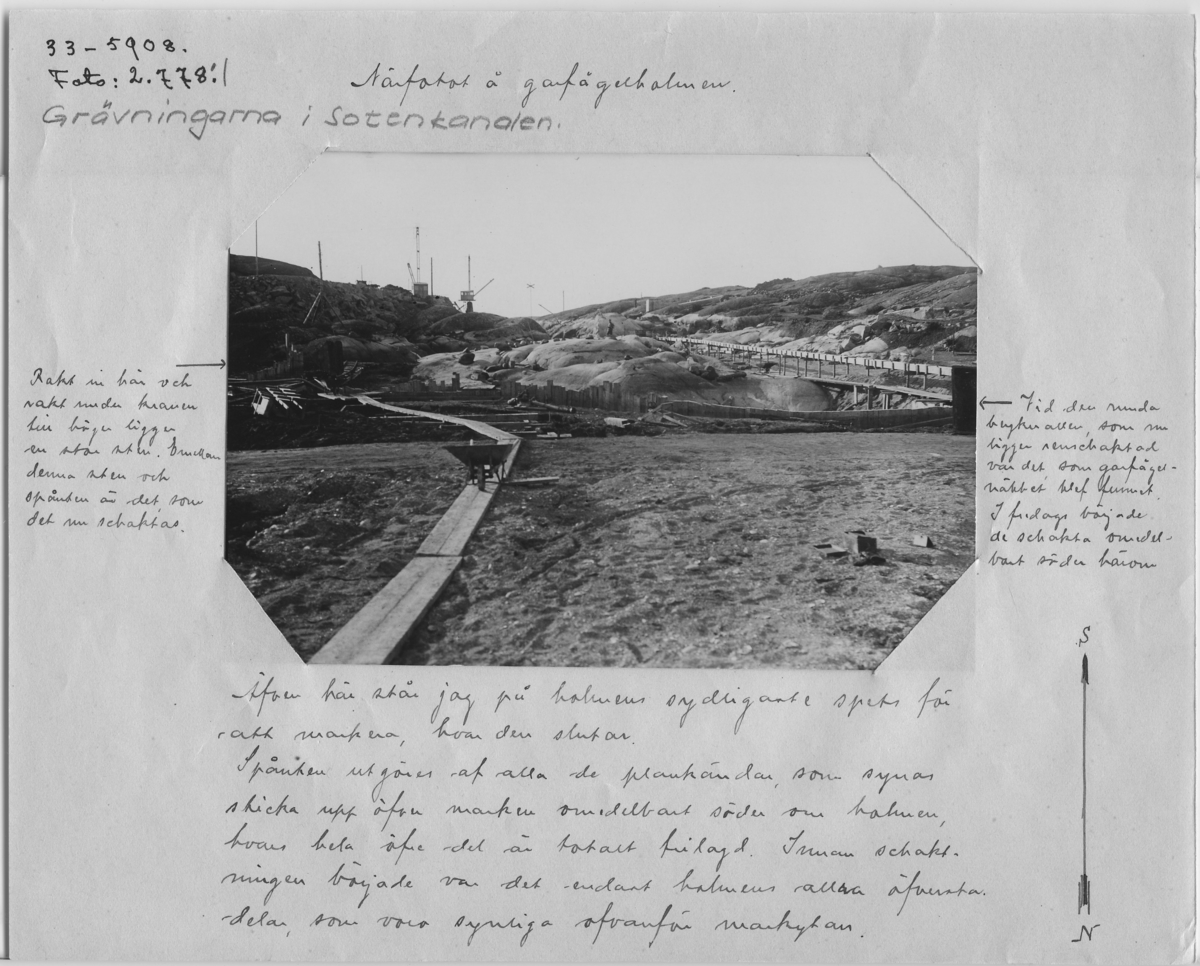 33-5908.
Foto: 2.778:1
Närfotot å garfågelholmen.
Grävningarna i Sotenkanalen.
Rakt in här och
rakt under kranen
till höger ligger
en stor sten. Emellan
denna sten och
spånten är det, som
det nu schaktas.
Vid den runda
bergknallen, som nu
ligger renschaktad
var det som garfågel-
näbbet blef funnet.
I fredags började
de schakta omedel-
bart söder härom
Äfven här står jag på holmens sydligaste spets för
att markera, hvar den slutar.
Spånten utgöres af alla de plankändar, som synas
sticka upp öfver marken omedelbart söder om holmen,
hvars hela öfre del är totalt frilagd. Innan schakt-
ningen började var det endast holmens allra öfversta
delar, som voro synliga ofvanför markytan.
S
N